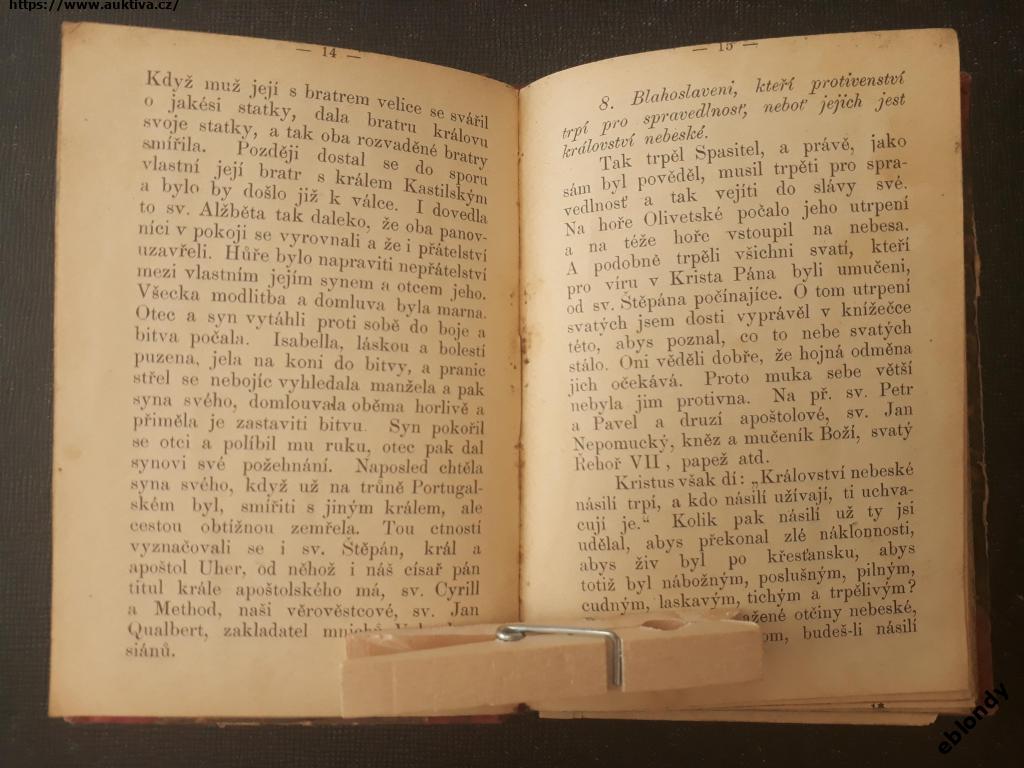 https://www.auktiva.cz/
— 14 —
Když muž její s bratrem velice se svářil
o jakési statky, dala bratru královu
svoje statky, a tak oba rozvaděné bratry
smířila. Později dostal se do sporu
vlastní její bratr s králem Kastilským
a bylo by došlo již k válce. I dovedla
to sv. Alžběta tak daleko, že oba panov-
níci v pokoji se vyrovnali a že i přátelství
uzavřeli. Hůře bylo napraviti nepřátelství
mezi vlastním jejím synem a otcem jeho.
Všecka modlitba a domluva byla marna.
Otec a syn vytáhli proti sobě do boje a
bitva počala. Isabella, láskou a bolestí
puzena, jela na koni do bitvy, a pranic
střel se nebojíc vyhledala manžela a pak
syna svého, domlouvala oběma horlivě a
přiměla je zastaviti bitvu. Syn pokořil
se otci a políbil mu ruku, otec pak dal
synovi své požehnání. Naposled chtěla
syna svého, když už na trůně Portugal-
ském byl, smířiti s jiným králem, ale
cestou obtížnou zemřela. Tou ctností
vyznačovali se i sv. Štěpán, král a
apoštol Uher, od něhož i náš císař pán
titul krále apoštolského má, sv. Cyrill
a Method, naši věrověstcové, sv. Jan
Qualbert, zakladatel mnichů
siánů.
— 15 —
8. Blahoslaveni, kteří protivenství
trpí pro spravedlnosť, neboť jejich jest
království nebeské.
Tak trpěl Spasitel, a právě, jako
sám byl pověděl, musil trpěti pro spra-
vedlnosť a tak vejíti do slávy své.
Na hoře Olivetské počalo jeho utrpení
a na téže hoře vstoupil na nebesa.
A podobně trpěli všichni svatí, kteří
pro víru v Krista Pána byli umučeni,
od sv. Štěpána počínajíce. O tom utrpení
svatých jsem dosti vyprávěl v knížečce
této, abys poznal, co to nebe svatých
stálo. Oni věděli dobře, že hojná odměna
jich očekává. Proto muka sebe větší
nebyla jim protivna. Na př. sv. Petr
a Pavel a druzí apoštolové, sv. Jan
Nepomucký, kněz a mučeník Boží, svatý
Řehoř VII, papež atd.
Kristus však dí: „Království nebeské
násilí trpí, a kdo násilí užívají, ti uchva-
cují je.“ Kolik pak násilí už ty jsi
udělal, abys překonal zlé náklonnosti,
abys živ byl po křesťansku, abys
totiž byl nábožným, poslušným, pilným,
cudným, laskavým, tichým a trpělivým?
otčiny nebeské,
budeš-li násilí
eblondy